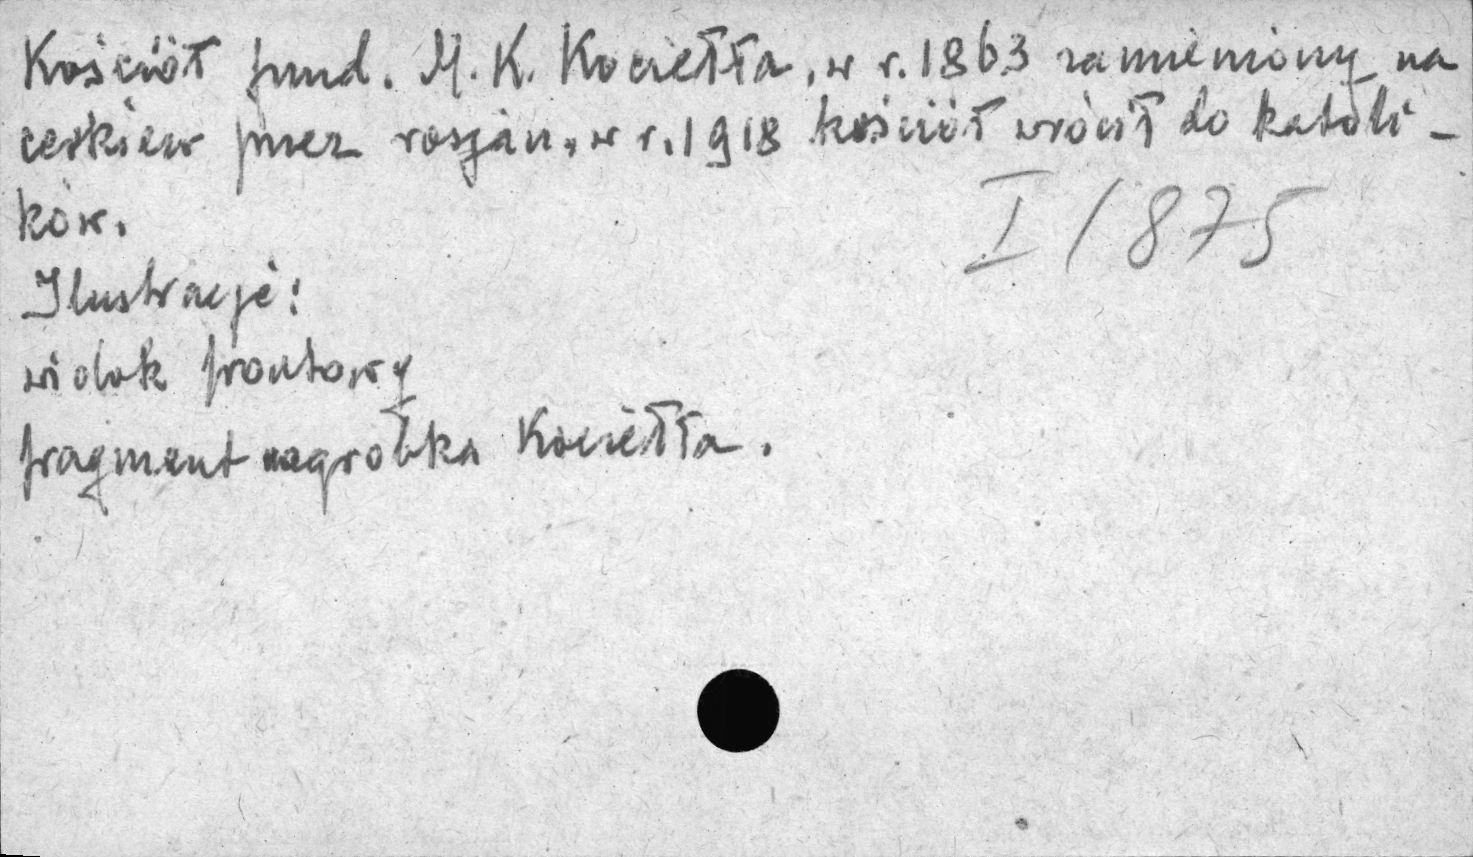 Kościół fund. M. K. Kociełła, w r. 1863 zamieniony na
cerkiew przez rosjan, w r. 1918 kościół wrócił do katoli-
ków.
I/875
Ilustracje:
widok frontowy
fragment nagrobka Kociełła.